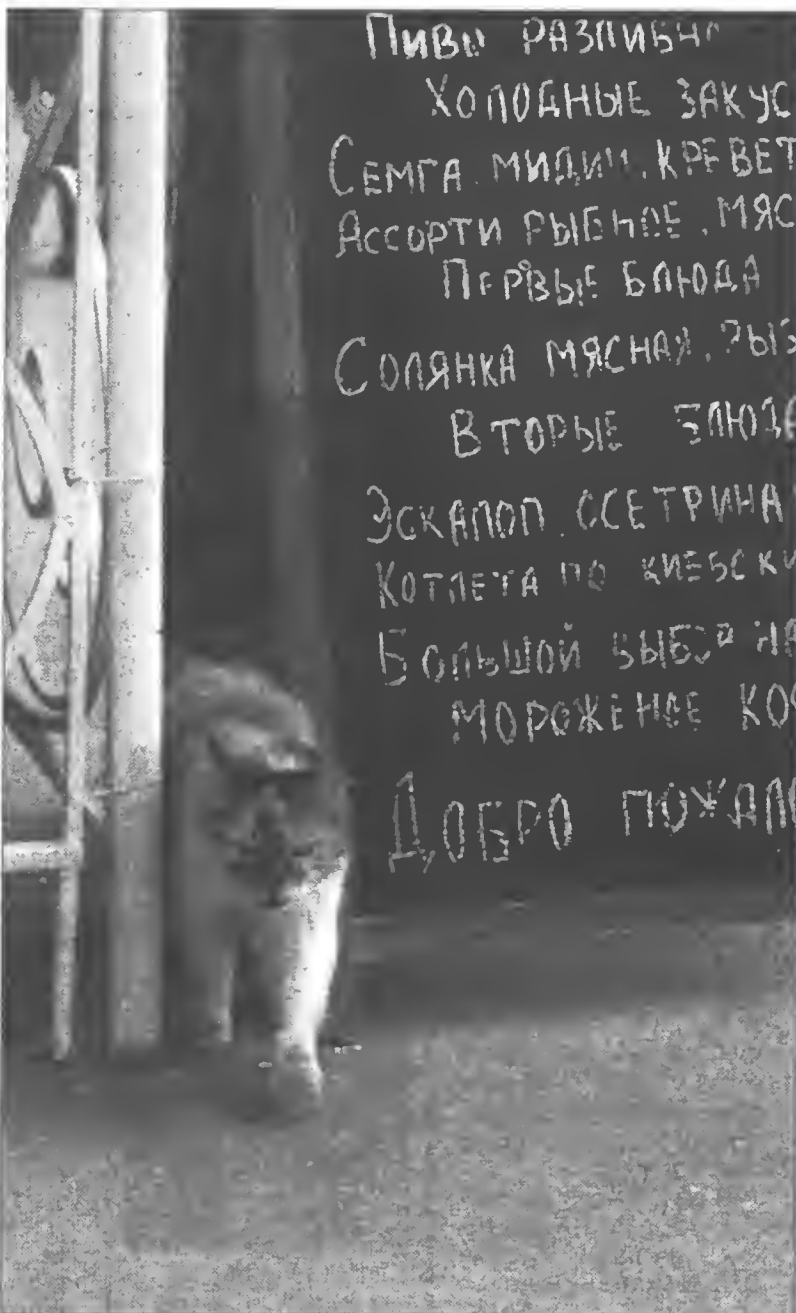 Пиво РАЗЛИВН
ХОЛОДНЫЕ ЗАКУС
СЕМГА. МИДИИ. КРЕВЕТ
АССОРТИ РЫБНОЕ, МЯС
ПЕРВЫЕ БЛЮДА
СОЛЯНКА МЯСНАЯ, РЫБ
ВТОРЫЕ БЛЮДА
ЭСКАЛОП. ОСЕТРИНА
КОТЛЕТА ПО КИЕВСКИ
БОЛЬШОЙ ВЫБОР НА
МОРОЖЕНОЕ КОФ
ДОБРО ПОЖАЛО